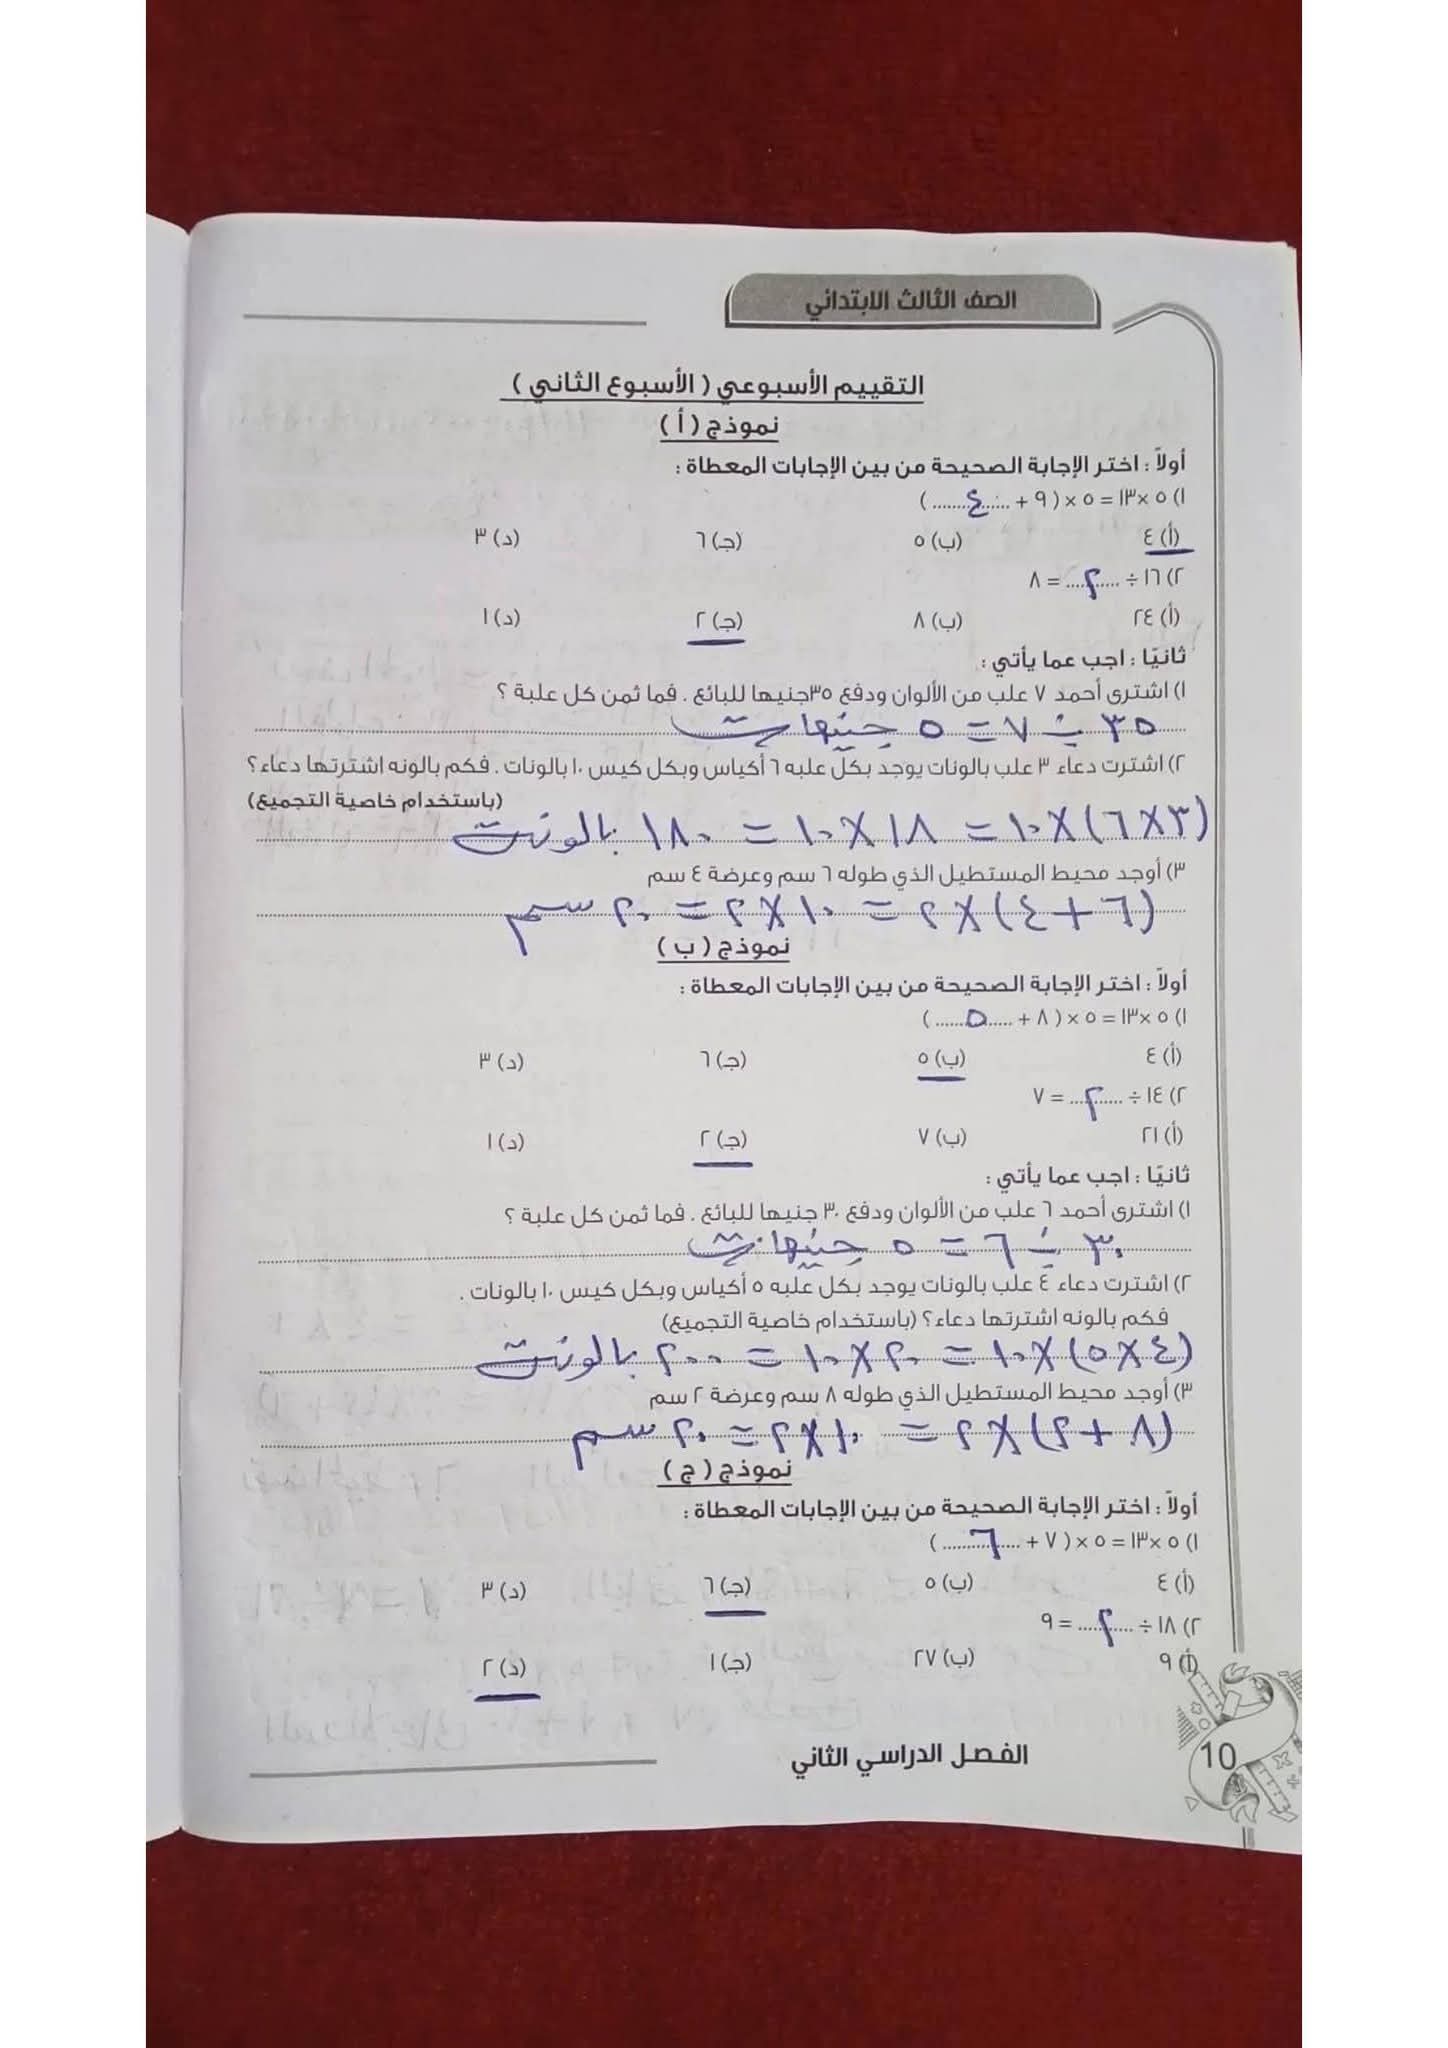 الصف الثالث الابتدائي
التقييم الأسبوعي ( الأسبوع الثاني )
نموذج ( أ )
أولاً : اختر الإجابة الصحيحة من بين الإجابات المعطاة :
١) ٥ × ١٣ = ٥ × ( ٩ + ....٤.... )
(أ) ٤ (ب) ٥ (جـ) ٦ (د) ٣
٢) ١٦ ÷ ....٢.... = ٨
(أ) ٢٤ (ب) ٨ (جـ) ٢ (د) ١
ثانيًا : اجب عما يأتي :
١) اشترى أحمد ٧ علب من الألوان ودفع ٣٥جنيها للبائع . فما ثمن كل علبة ؟
٣٥ ÷ ٧ = ٥ جنيهات
٢) اشترت دعاء ٣ علب بالونات يوجد بكل علبه ٦ أكياس وبكل كيس ١٠ بالونات . فكم بالونه اشترتها دعاء؟
(باستخدام خاصية التجميع)
(٣×٦)×١٠ = ١٨×١٠ = ١٨٠ بالونت
٣) أوجد محيط المستطيل الذي طوله ٦ سم وعرضة ٤ سم
(٦+٤)×٢ = ١٠×٢ = ٢٠ سم
نموذج ( ب )
أولاً : اختر الإجابة الصحيحة من بين الإجابات المعطاة :
١) ٥ × ١٣ = ٥ × ( ٨ + ....٥.... )
(أ) ٤ (ب) ٥ (جـ) ٦ (د) ٣
٢) ١٤ ÷ ....٢.... = ٧
(أ) ٢١ (ب) ٧ (جـ) ٢ (د) ١
ثانيًا : اجب عما يأتي :
١) اشترى أحمد ٦ علب من الألوان ودفع ٣٠ جنيها للبائع . فما ثمن كل علبة ؟
٣٠ ÷ ٦ = ٥ جنيهات
٢) اشترت دعاء ٤ علب بالونات يوجد بكل علبه ٥ أكياس وبكل كيس ١٠ بالونات .
فكم بالونه اشترتها دعاء؟ (باستخدام خاصية التجميع)
(٤×٥)×١٠ = ٢٠×١٠ = ٢٠٠ بالونت
٣) أوجد محيط المستطيل الذي طوله ٨ سم وعرضة ٢ سم
(٨+٢)×٢ = ١٠×٢ = ٢٠ سم
نموذج ( ج )
أولاً : اختر الإجابة الصحيحة من بين الإجابات المعطاة :
١) ٥ × ١٣ = ٥ × ( ٧ + ....٦.... )
(أ) ٤ (ب) ٥ (جـ) ٦ (د) ٣
٢) ١٨ ÷ ....٢.... = ٩
(أ) ٩ (ب) ٢٧ (جـ) ١ (د) ٢
الفصل الدراسي الثاني
10